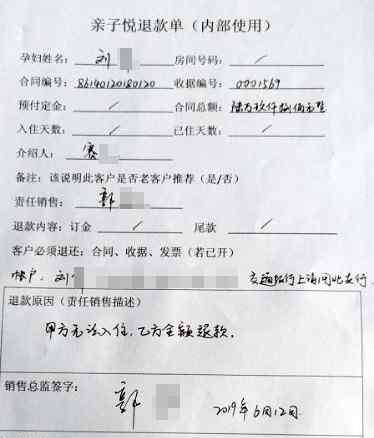 亲子悦退款单（内部使用）
孕妇姓名： 刘 房间号码： /
合同编号： 86140120180120 收据编号： 0001569
预付定金： / 合同总额： 陆万玖仟捌佰元整
入住天数： / 已住天数： /
介绍人： 寒
备注：该说明此客户是否老客户推荐（是/否）
责任销售： 郭
退款内容：订金 / 尾款 /
客户必须退还：合同、收据、发票（若已开）
帐户. 刘 交通银行上海闵北支行.
退款原因（责任销售描述）
甲方无法入住，乙方全额退款.
销售总监签字： 郭 2019年6月12日.